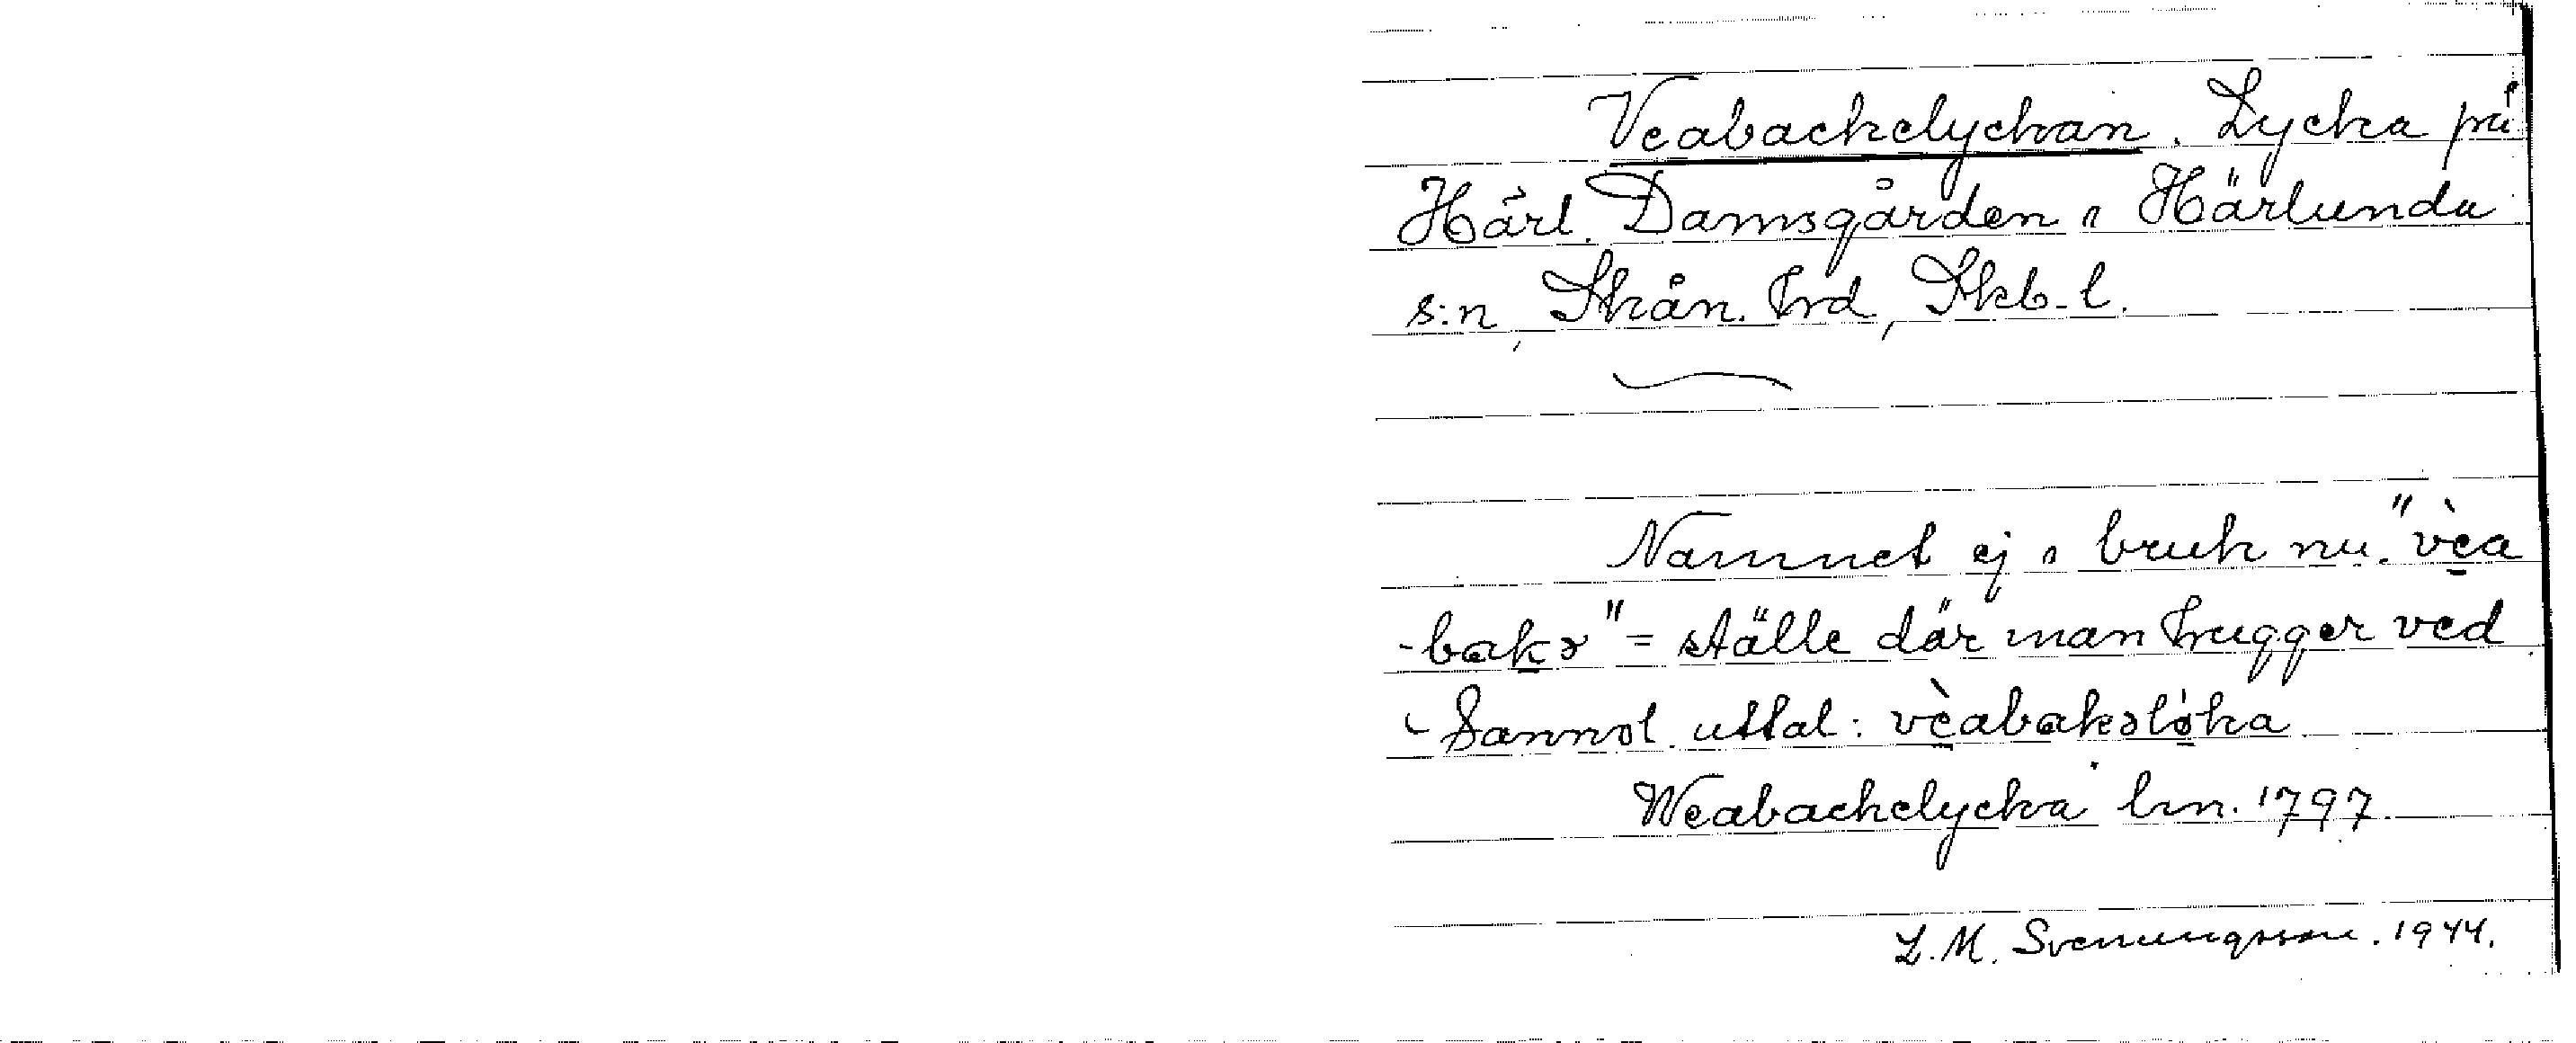 Veabackelyckan. Lycka på
Härl. Damsgården i Härlunda
s:n, Skån. hrd, Skb. l.
Namnet ej i bruk nu. "vèa
-bakə" = ställe där man hugger ved
- Sannol. uttal: vèabakəlòka
Weabackelycka lm. 1797.
L. M. Svenungsson. 1944.